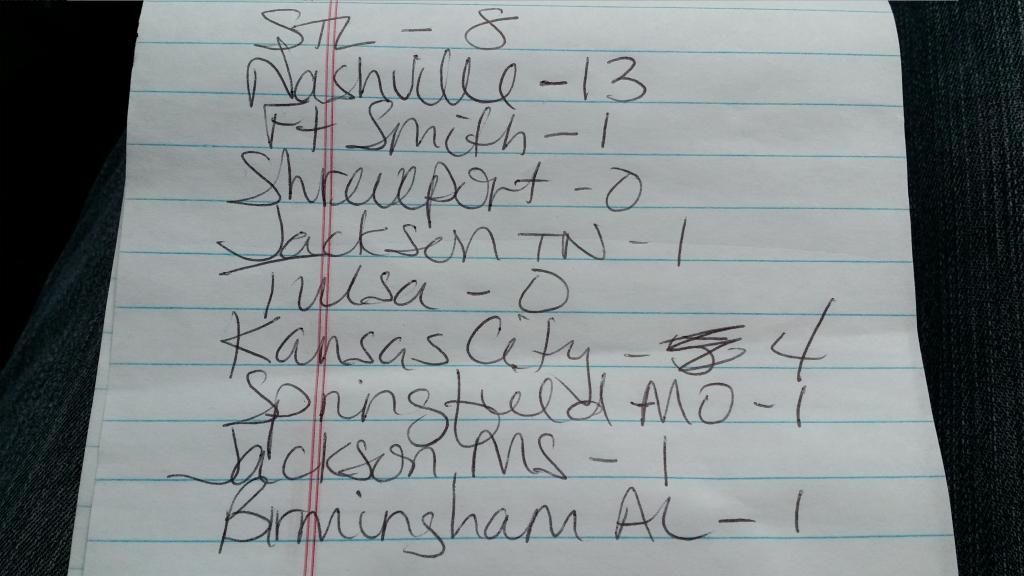 STL - 8
Nashville - 13
Ft Smith - 1
Shreveport - 0
Jackson TN - 1
Tulsa - 0
Kansas City - 4
Springfield MO - 1
Jackson MS - 1
Birmingham AL - 1